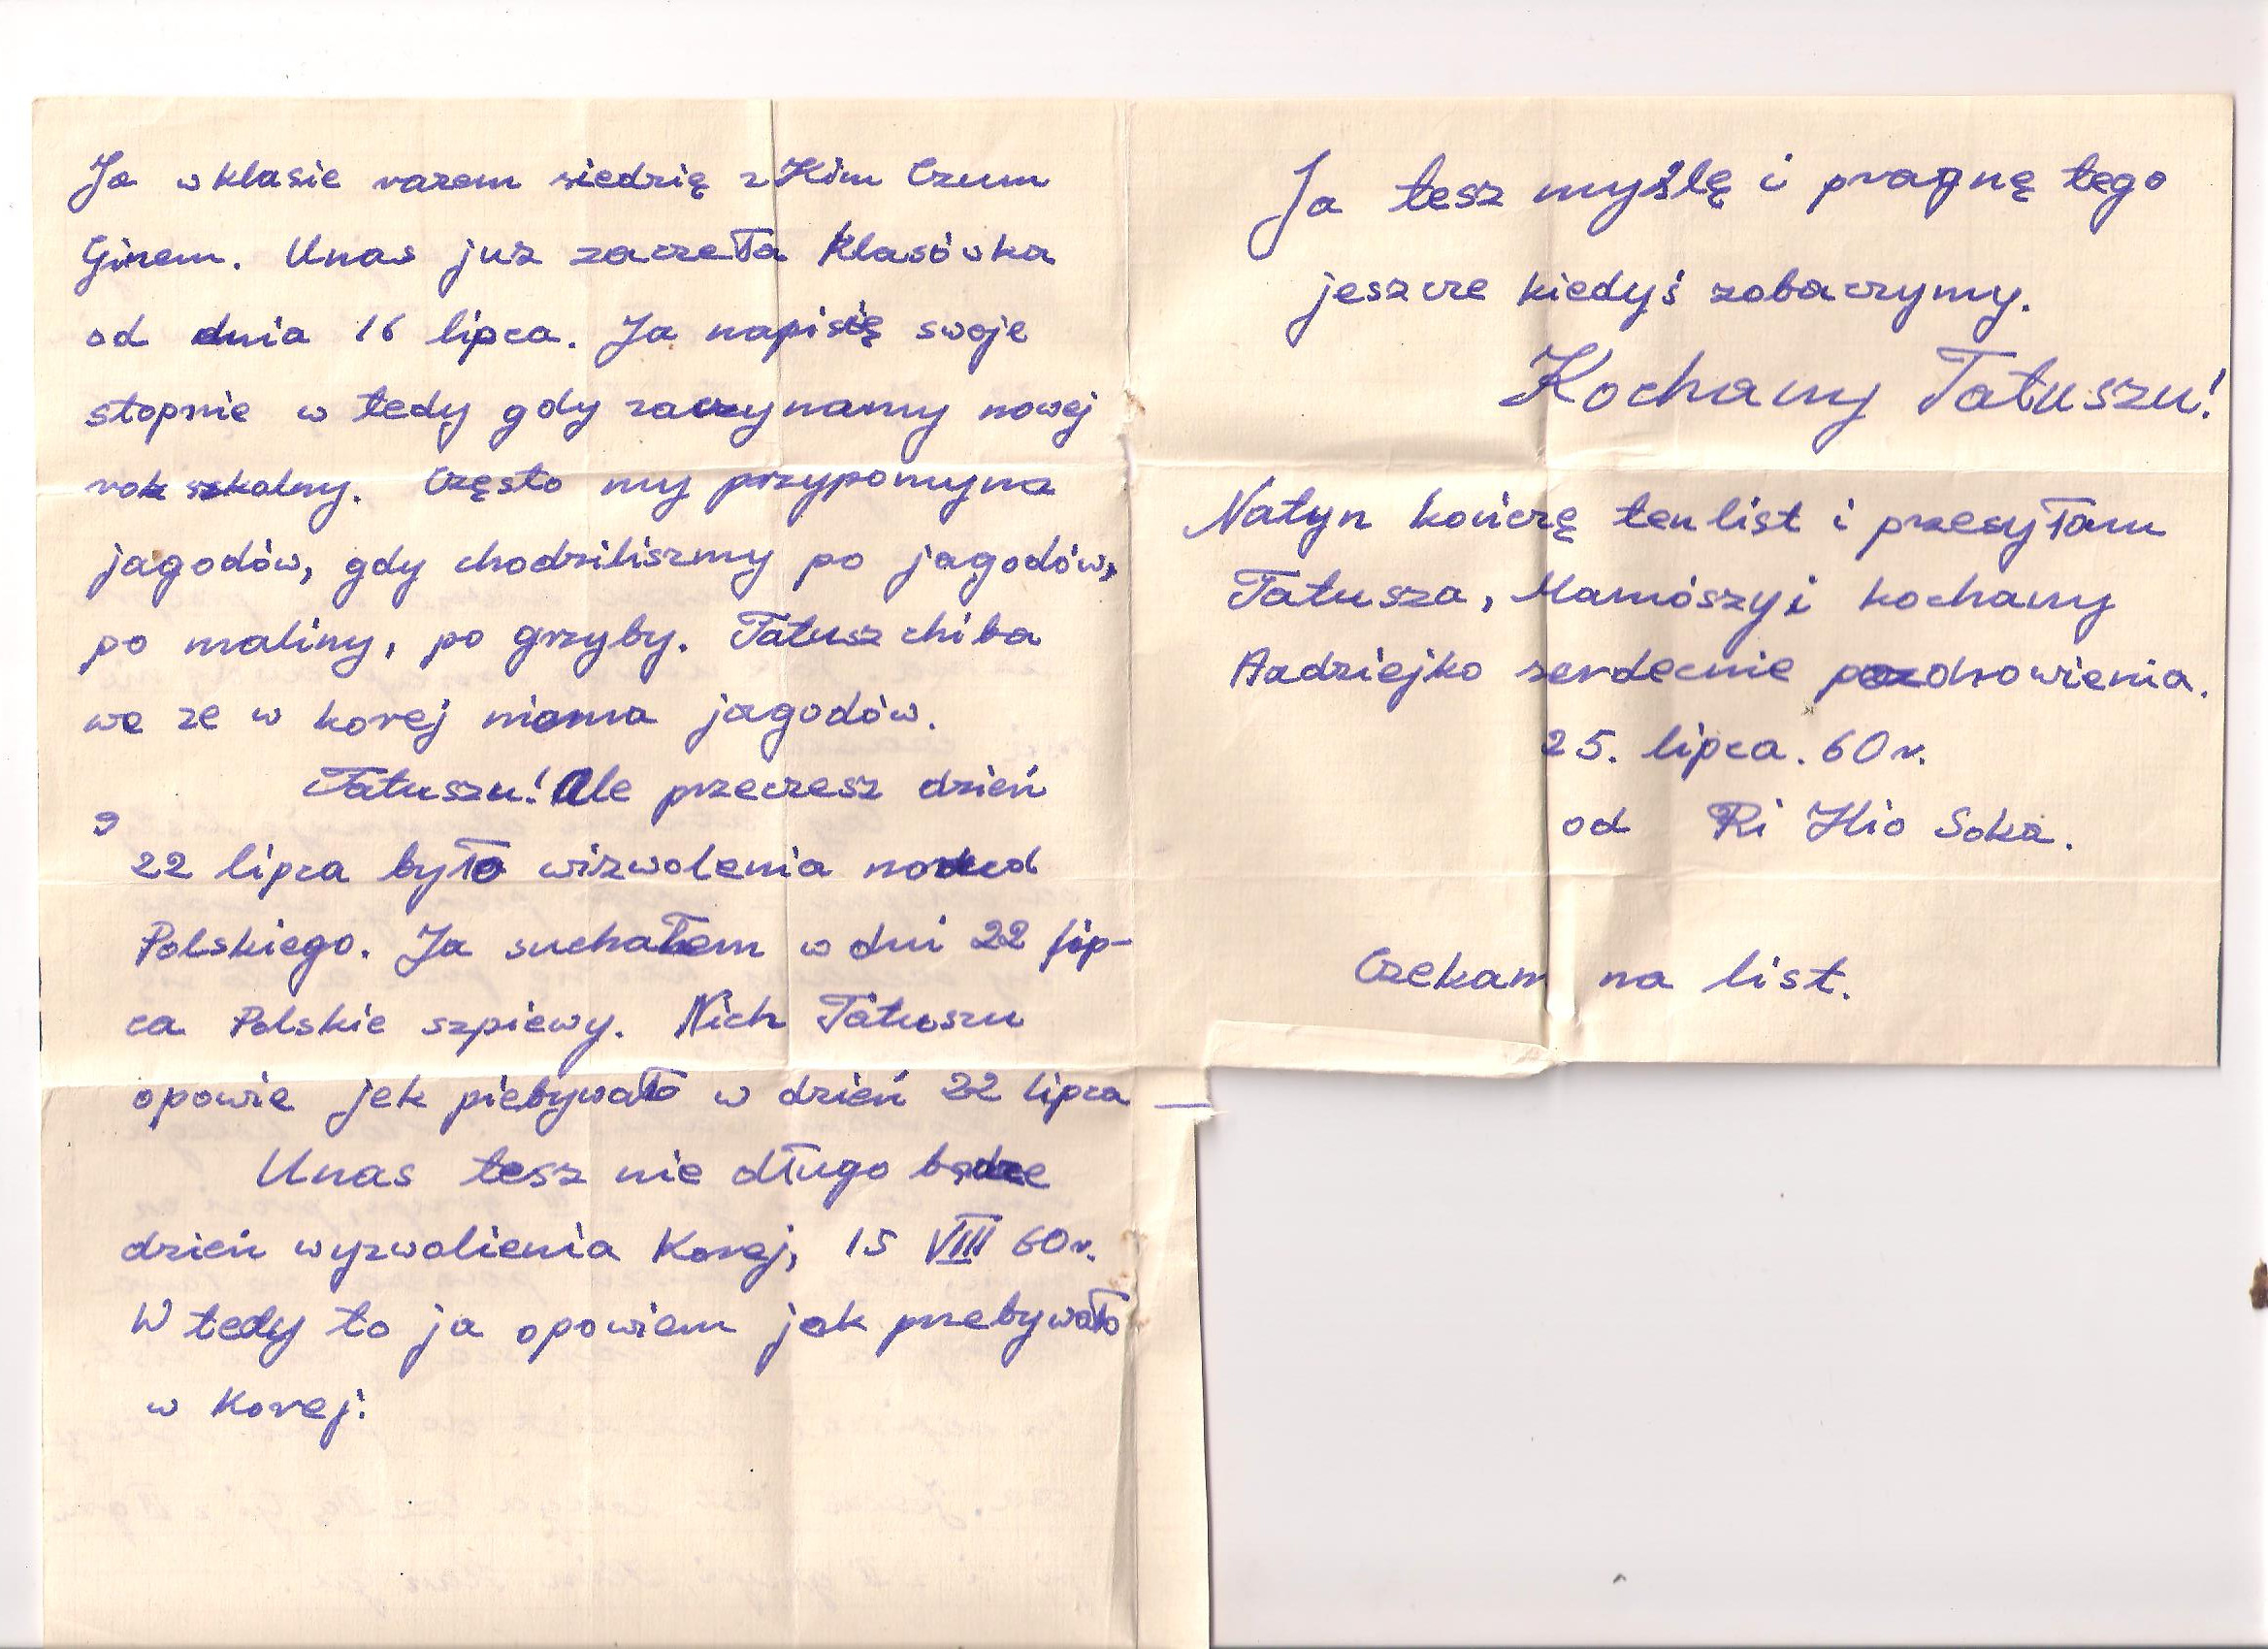 Ja w klasie razem siedzię z Kim Czum
Ginem. Unas już zaczeła klasówka
od dnia 16 lipca. Ja napisię swoje
stopnie w tedy gdy zaczynamy nowej
rok szkolny. Często my przypomyna
jagodów, gdy chodziliszmy po jagodów,
po maliny, po grzyby. Tatusz chiba
we ze w korej niama jagodów.
Tatuszu! Ale przeczesz dzień
22 lipca było wizwolenia
Polskiego. Ja suchałem w dni 22 lip-
ca Polskie szpiewy. Nich Tatuszu
opowie jek piebywało w dzień 22 lipca —
Unas tesz nie długo będze
dzień wyzwolienia Korej, 15 VIII 60r.
W tedy to ja opowiem jak przebywało
w Korej.
Ja tesz myślę i pragnę tego
jeszcze kiedyś zobaczymy.
Kochany Tatuszu!
Natyn kończę ten list i przesyłam
Tatusza, Mamószy i kochamy
Azdziejko serdecnie pozdrowienia.
25. lipca. 60r.
od Ri Hio Soka.
Czekam na list.